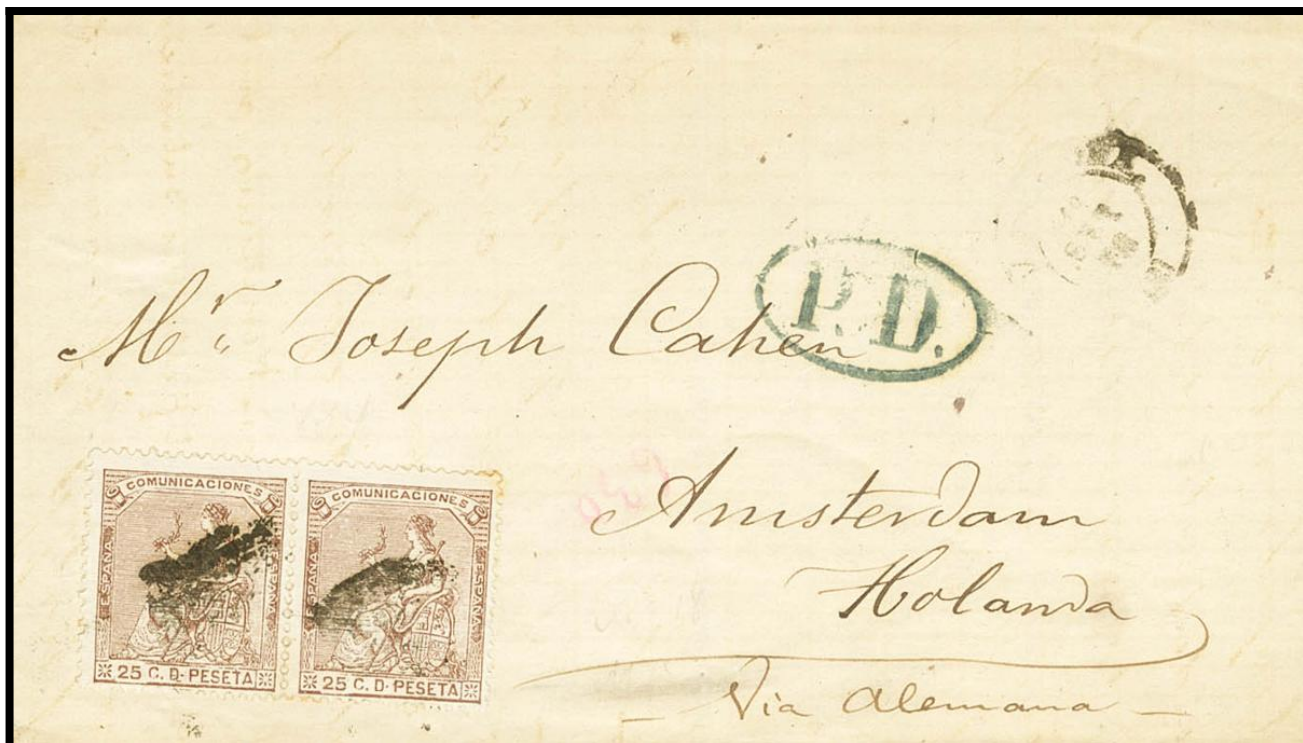 P. D.
Mr. Joseph Cahen
Amsterdam
Holanda
Via Alemana
COMUNICACIONES
ESPAÑA
25 C. D. PESETA
COMUNICACIONES
ESPAÑA
25 C. D. PESETA